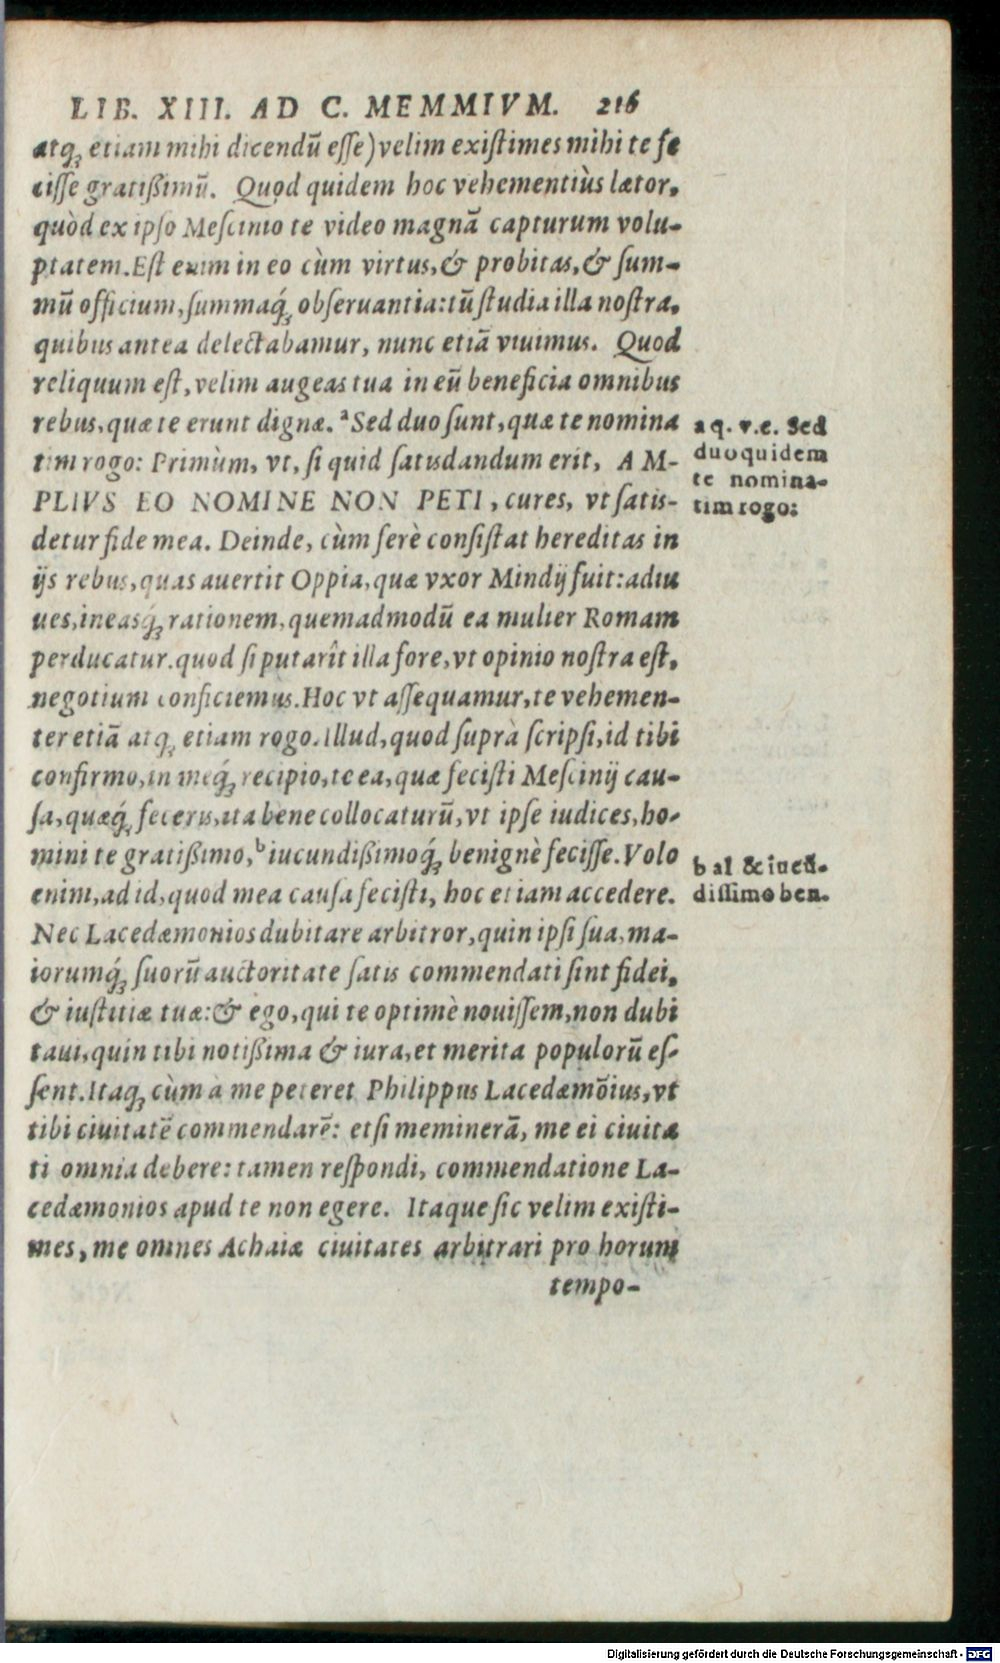 LIB. XIII. AD C. MEMMIVM. 216
atq; etiam mihi dicendū esse) velim existimes mihi te fe
cisse gratißimū. Quod quidem hoc vehementiùs lætor,
quòd ex ipso Mescinio te video magnā capturum volu-
ptatem. Est enim in eo cùm virtus, & probitas, & sum-
mū officium, summaq́; obseruantia: tū studia illa nostra,
quibus antea delectabamur, nunc etiā viuimus. Quod
reliquum est, velim augeas tua in eū beneficia omnibus
rebus, quæ te erunt dignæ. ᵃ Sed duo sunt, quæ te nomina
tim rogo: Primùm, vt, si quid satisdandum erit, AM-
PLIVS EO NOMINE NON PETI, cures, vt satis-
detur fide mea. Deinde, cùm ferè consistat hereditas in
ijs rebus, quas auertit Oppia, quæ vxor Mindij fuit: adiu
ues, ineasq́; rationem, quemadmodū ea mulier Romam
perducatur. quod si putarît illa fore, vt opinio nostra est,
negotium conficiemus. Hoc vt assequamur, te vehemen-
ter etiā atq; etiam rogo. Illud, quod suprà scripsi, id tibi
confirmo, in meq́; recipio, te ea, quæ fecisti Mescinij cau-
sa, quæq́; feceris, ita bene collocaturū, vt ipse iudices, ho-
mini te gratißimo, ᵇ iucundißimoq́; benignè fecisse. Volo
enim, ad id, quod mea causa fecisti, hoc etiam accedere.
Nec Lacedæmonios dubitare arbitror, quin ipsi sua, ma-
iorumq́; suorū auctoritate satis commendati sint fidei,
& iustitiæ tuæ: & ego, qui te optimè nouissem, non dubi
taui, quin tibi notißima & iura, et merita populorū es-
sent. Itaq; cùm à me peteret Philippus Lacedæmōius, vt
tibi ciuitatē commendarē: etsi meminerā, me ei ciuita
ti omnia debere: tamen respondi, commendatione La-
cedæmonios apud te non egere. Itaque sic velim existi-
mes, me omnes Achaiæ ciuitates arbitrari pro horum
tempo-
a q. v. e. Sed
duo quidem
te nomina-
tim rogo:
b al & iucū-
dissimo ben.
Digitalisierung gefördert durch die Deutsche Forschungsgemeinschaft - DFG